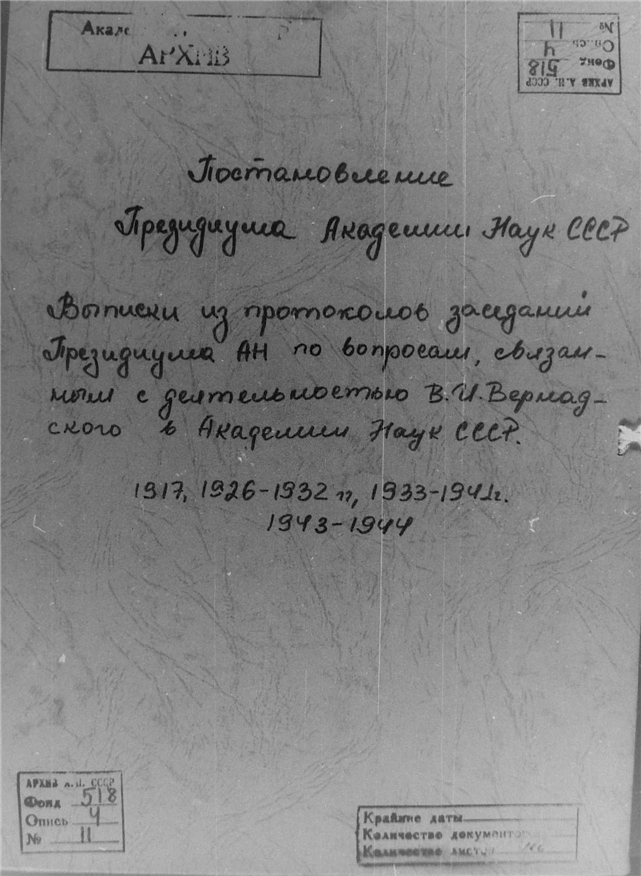 Акаде
АРХИВ
АРХИВ А.Н. СССР
Фонд 518
Оп. св. 4
№ 11
Постановление
Президиума Академии Наук СССР
Выписки из протоколов заседаний
Президиума АН по вопросам, связан-
ным с деятельностью В.И. Вернад-
ского в Академии Наук СССР.
1917, 1926-1932 гг, 1933-1941г.
1943-1944
АРХИВ А.Н. СССР
Фонд 518
Опись 4
№ 11
Крайние даты
Количество документов
Количество листов